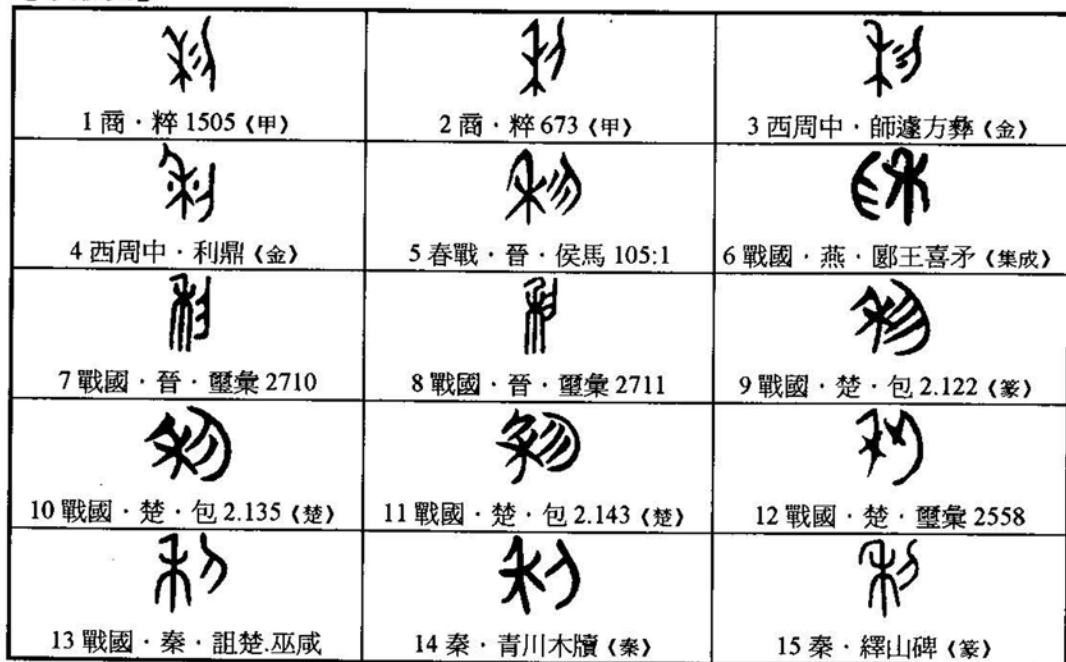 1 商．粹 1505《甲》
2 商．粹 673《甲》
3 西周中．師遽方彝《金》
4 西周中．利鼎《金》
5 春戰．晉．侯馬 105:1
6 戰國．燕．郾王喜矛《集成》
7 戰國．晉．璽彙 2710
8 戰國．晉．璽彙 2711
9 戰國．楚．包 2.122《篆》
10 戰國．楚．包 2.135《楚》
11 戰國．楚．包 2.143《楚》
12 戰國．楚．璽彙 2558
13 戰國．秦．詛楚.巫咸
14 秦．青川木牘《秦》
15 秦．繹山碑《篆》